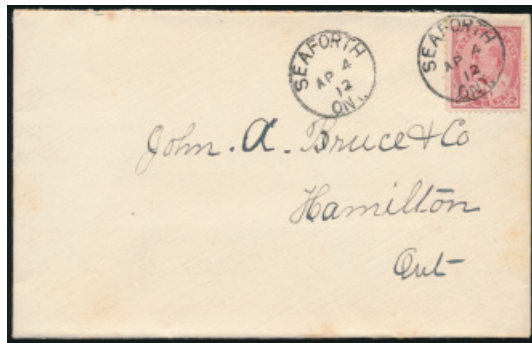 SEAFORTH
AP 4
12
ONT.
SEAFORTH
AP 4
12
ONT.
John. A. Bruce & Co
Hamilton
Ont